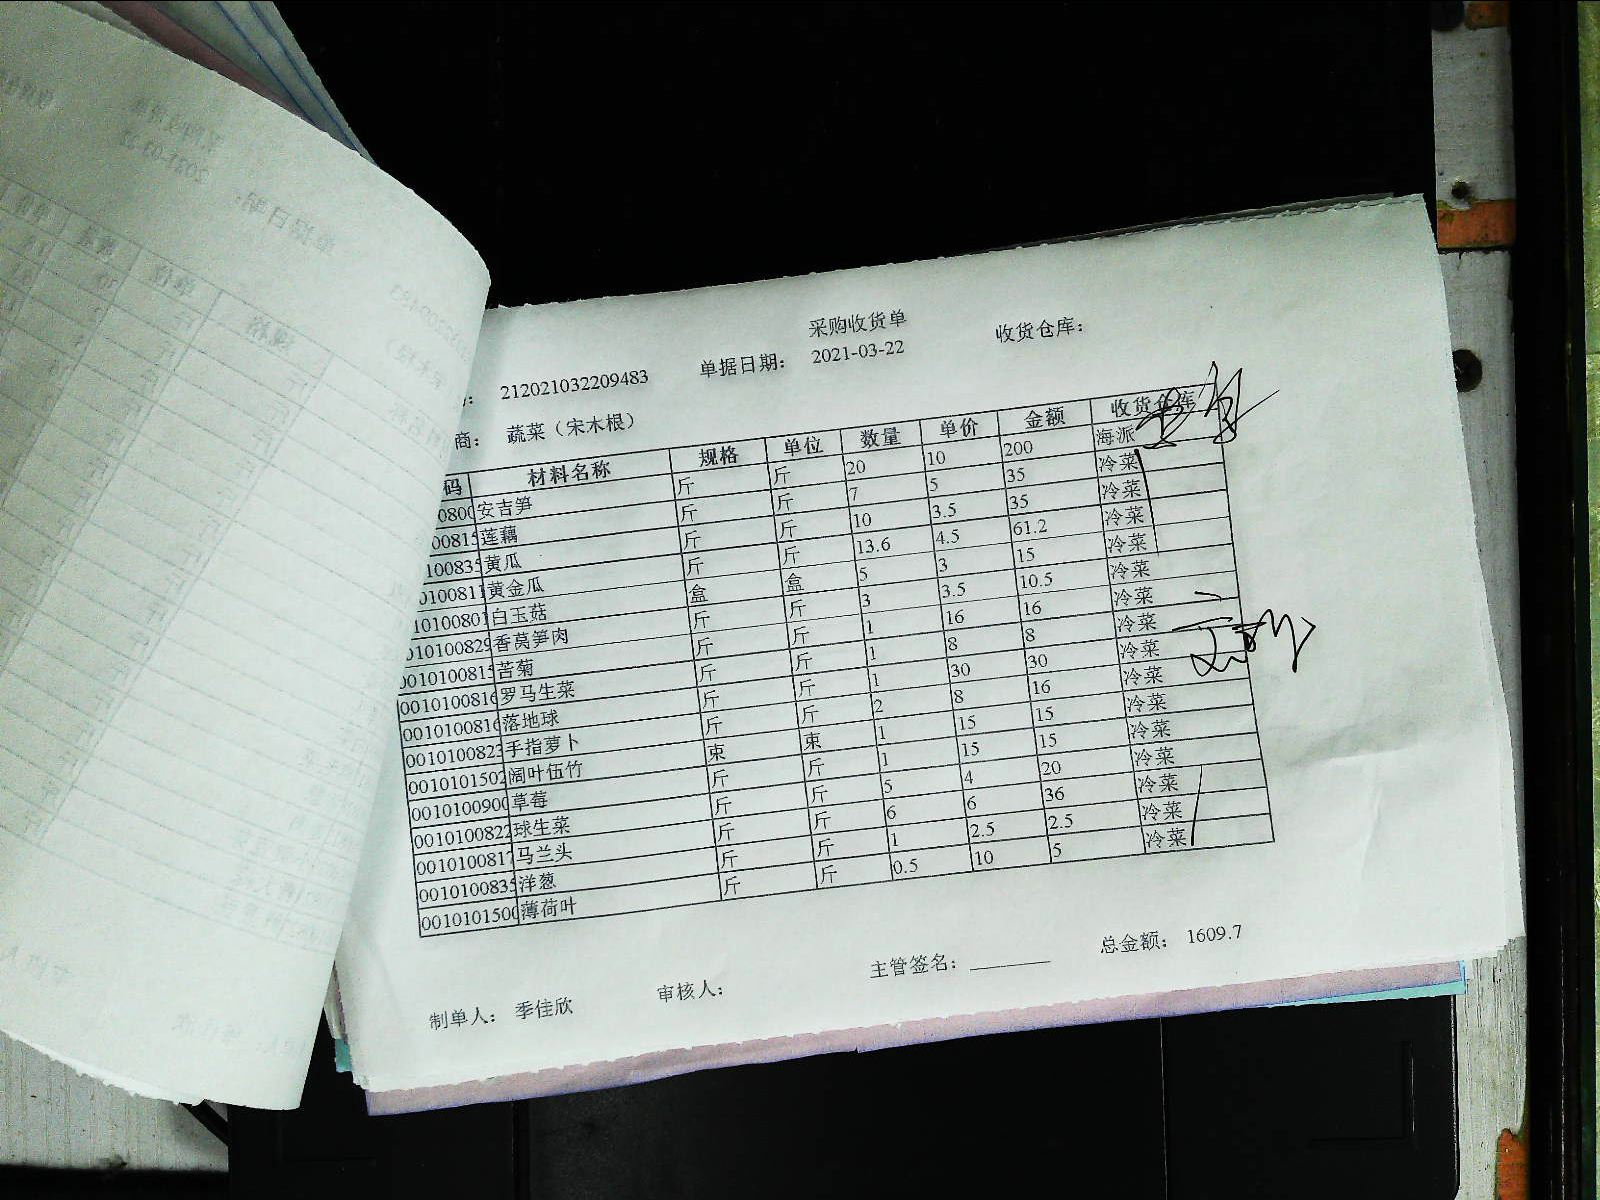 采购收货单
212021032209483 单据日期： 2021-03-22 收货仓库：
商： 蔬菜（宋木根）
码 材料名称 规格 单位 数量 单价 金额 收货仓库
0800 安吉笋 斤 斤 20 10 200 海派
00815 莲藕 斤 斤 7 5 35 冷菜
100835 黄瓜 斤 斤 10 3.5 35 冷菜
0100811 黄金瓜 斤 斤 13.6 4.5 61.2 冷菜
10100801 白玉菇 盒 盒 5 3 15 冷菜
010100829 香莴笋肉 斤 斤 3 3.5 10.5 冷菜
0010100815 苦菊 斤 斤 1 16 16 冷菜
0010100816 罗马生菜 斤 斤 1 8 8 冷菜
0010100816 落地球 斤 斤 1 30 30 冷菜
0010100823 手指萝卜 斤 斤 2 8 16 冷菜
0010101502 阔叶伍竹 束 束 1 15 15 冷菜
0010100900 草莓 斤 斤 1 15 15 冷菜
0010100822 球生菜 斤 斤 5 4 20 冷菜
0010100817 马兰头 斤 斤 6 6 36 冷菜
0010100835 洋葱 斤 斤 1 2.5 2.5 冷菜
0010101500 薄荷叶 斤 斤 0.5 10 5 冷菜
主管签名： 总金额： 1609.7
制单人： 季佳欣 审核人：